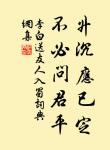 升沉應已定
不必問君平
李白送友人入蜀詞典
網集